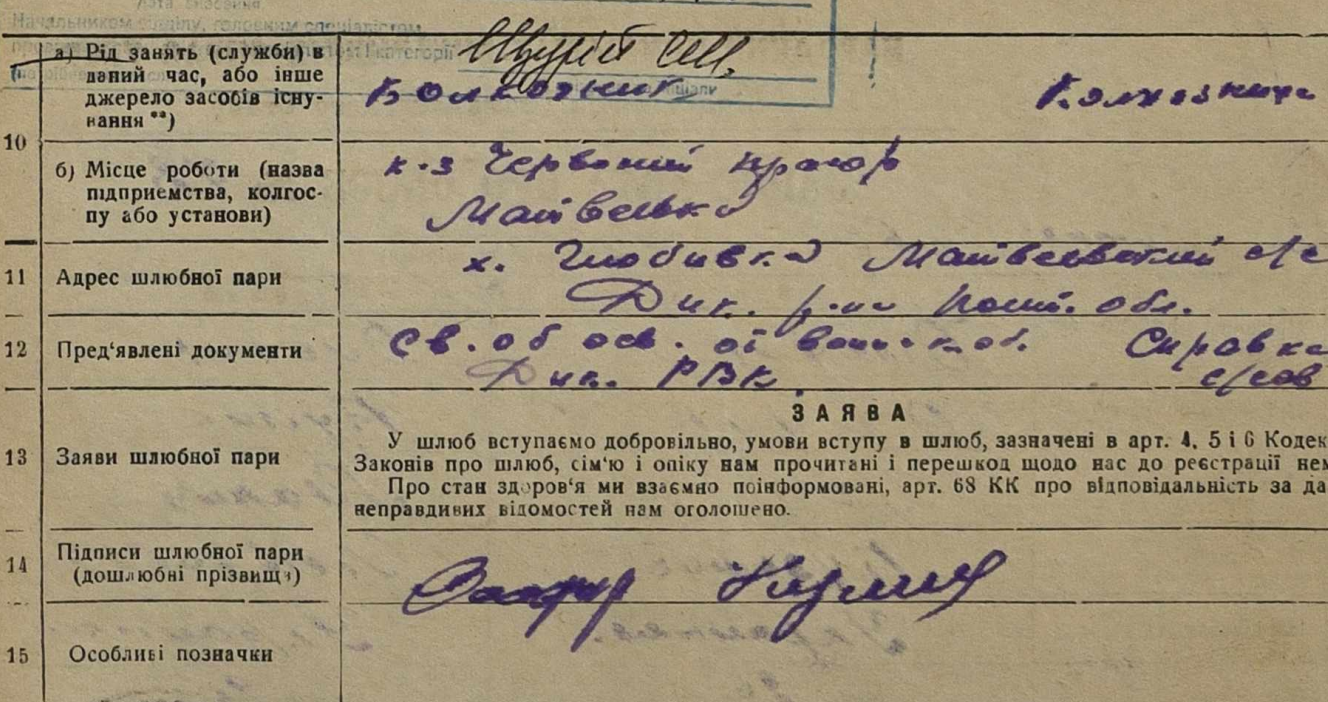 Начальником відділу, головним спеціалістом
категорії
Щурій С.М.
10
а) Рід занять (служби) в
даний час, або інше
джерело засобів існу-
вання **)
Колхозник
Колхозница
б) Місце роботи (назва
підприємства, колгос-
пу або установи)
к-з Червоний прапор
11
Адрес шлюбної пари
х.
с/с
Дик. р-на Полт. обл.
12
Пред'явлені документи
Св. об осв. от воинск. об.
Справка
Дик. РВК
с/сов
13
Заяви шлюбної пари
ЗАЯВА
У шлюб вступаємо добровільно, умови вступу в шлюб, зазначені в арт. 4, 5 і 6 Кодек
Законів про шлюб, сім'ю і опіку нам прочитані і перешкод щодо нас до реєстрації нем
Про стан здоров'я ми взаємно поінформовані, арт. 68 КК про відповідальність за да
неправдивих відомостей нам оголошено.
14
Підписи шлюбної пари
(дошлюбні прізвища)
15
Особливі позначки